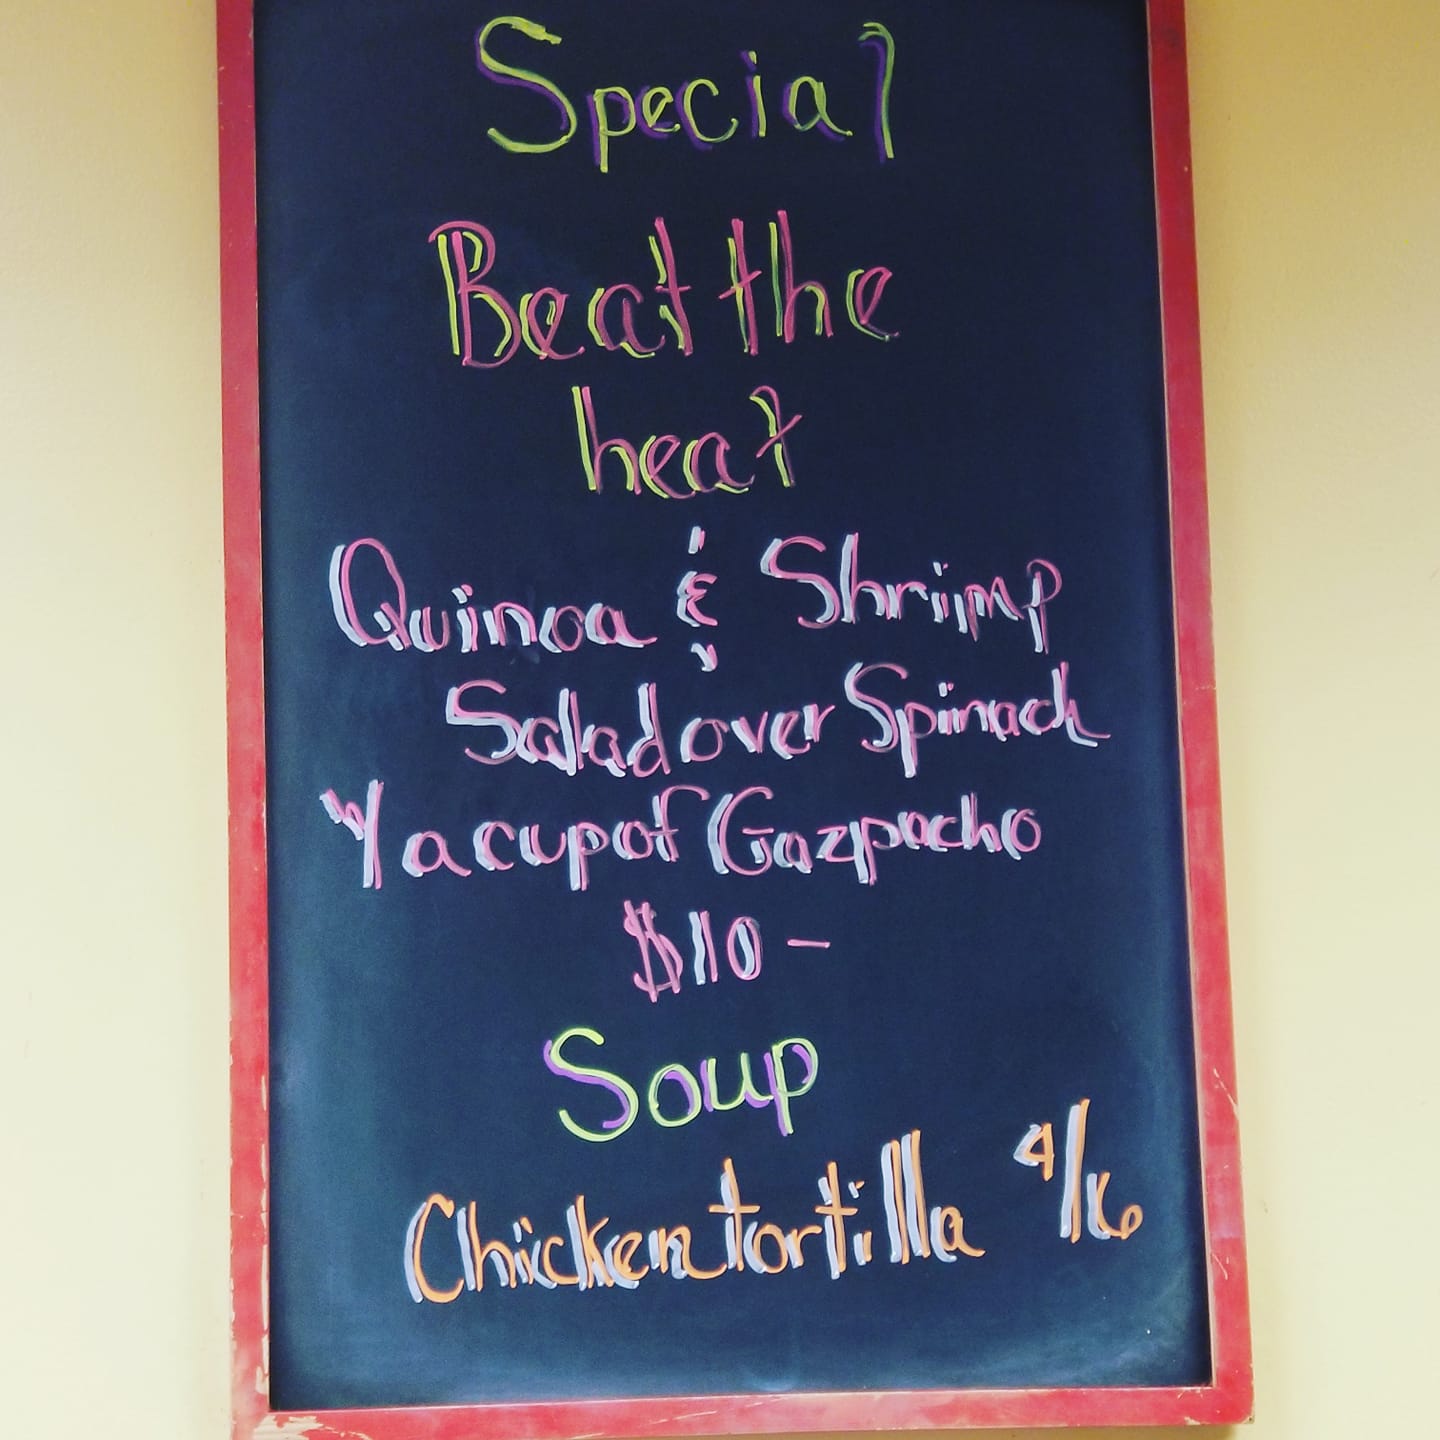 Special
Beat the
heat
Quinoa & Shrimp
Salad over Spinach
w/ a cup of Gazpacho
$10-
Soup
Chicken tortilla 4/6